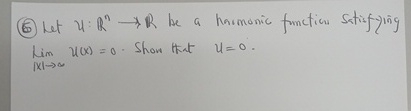 ⑥ Let u : ℝⁿ → ℝ be a harmonic function satisfying
lim u(x) = 0. Show that u = 0.
|x|→∞